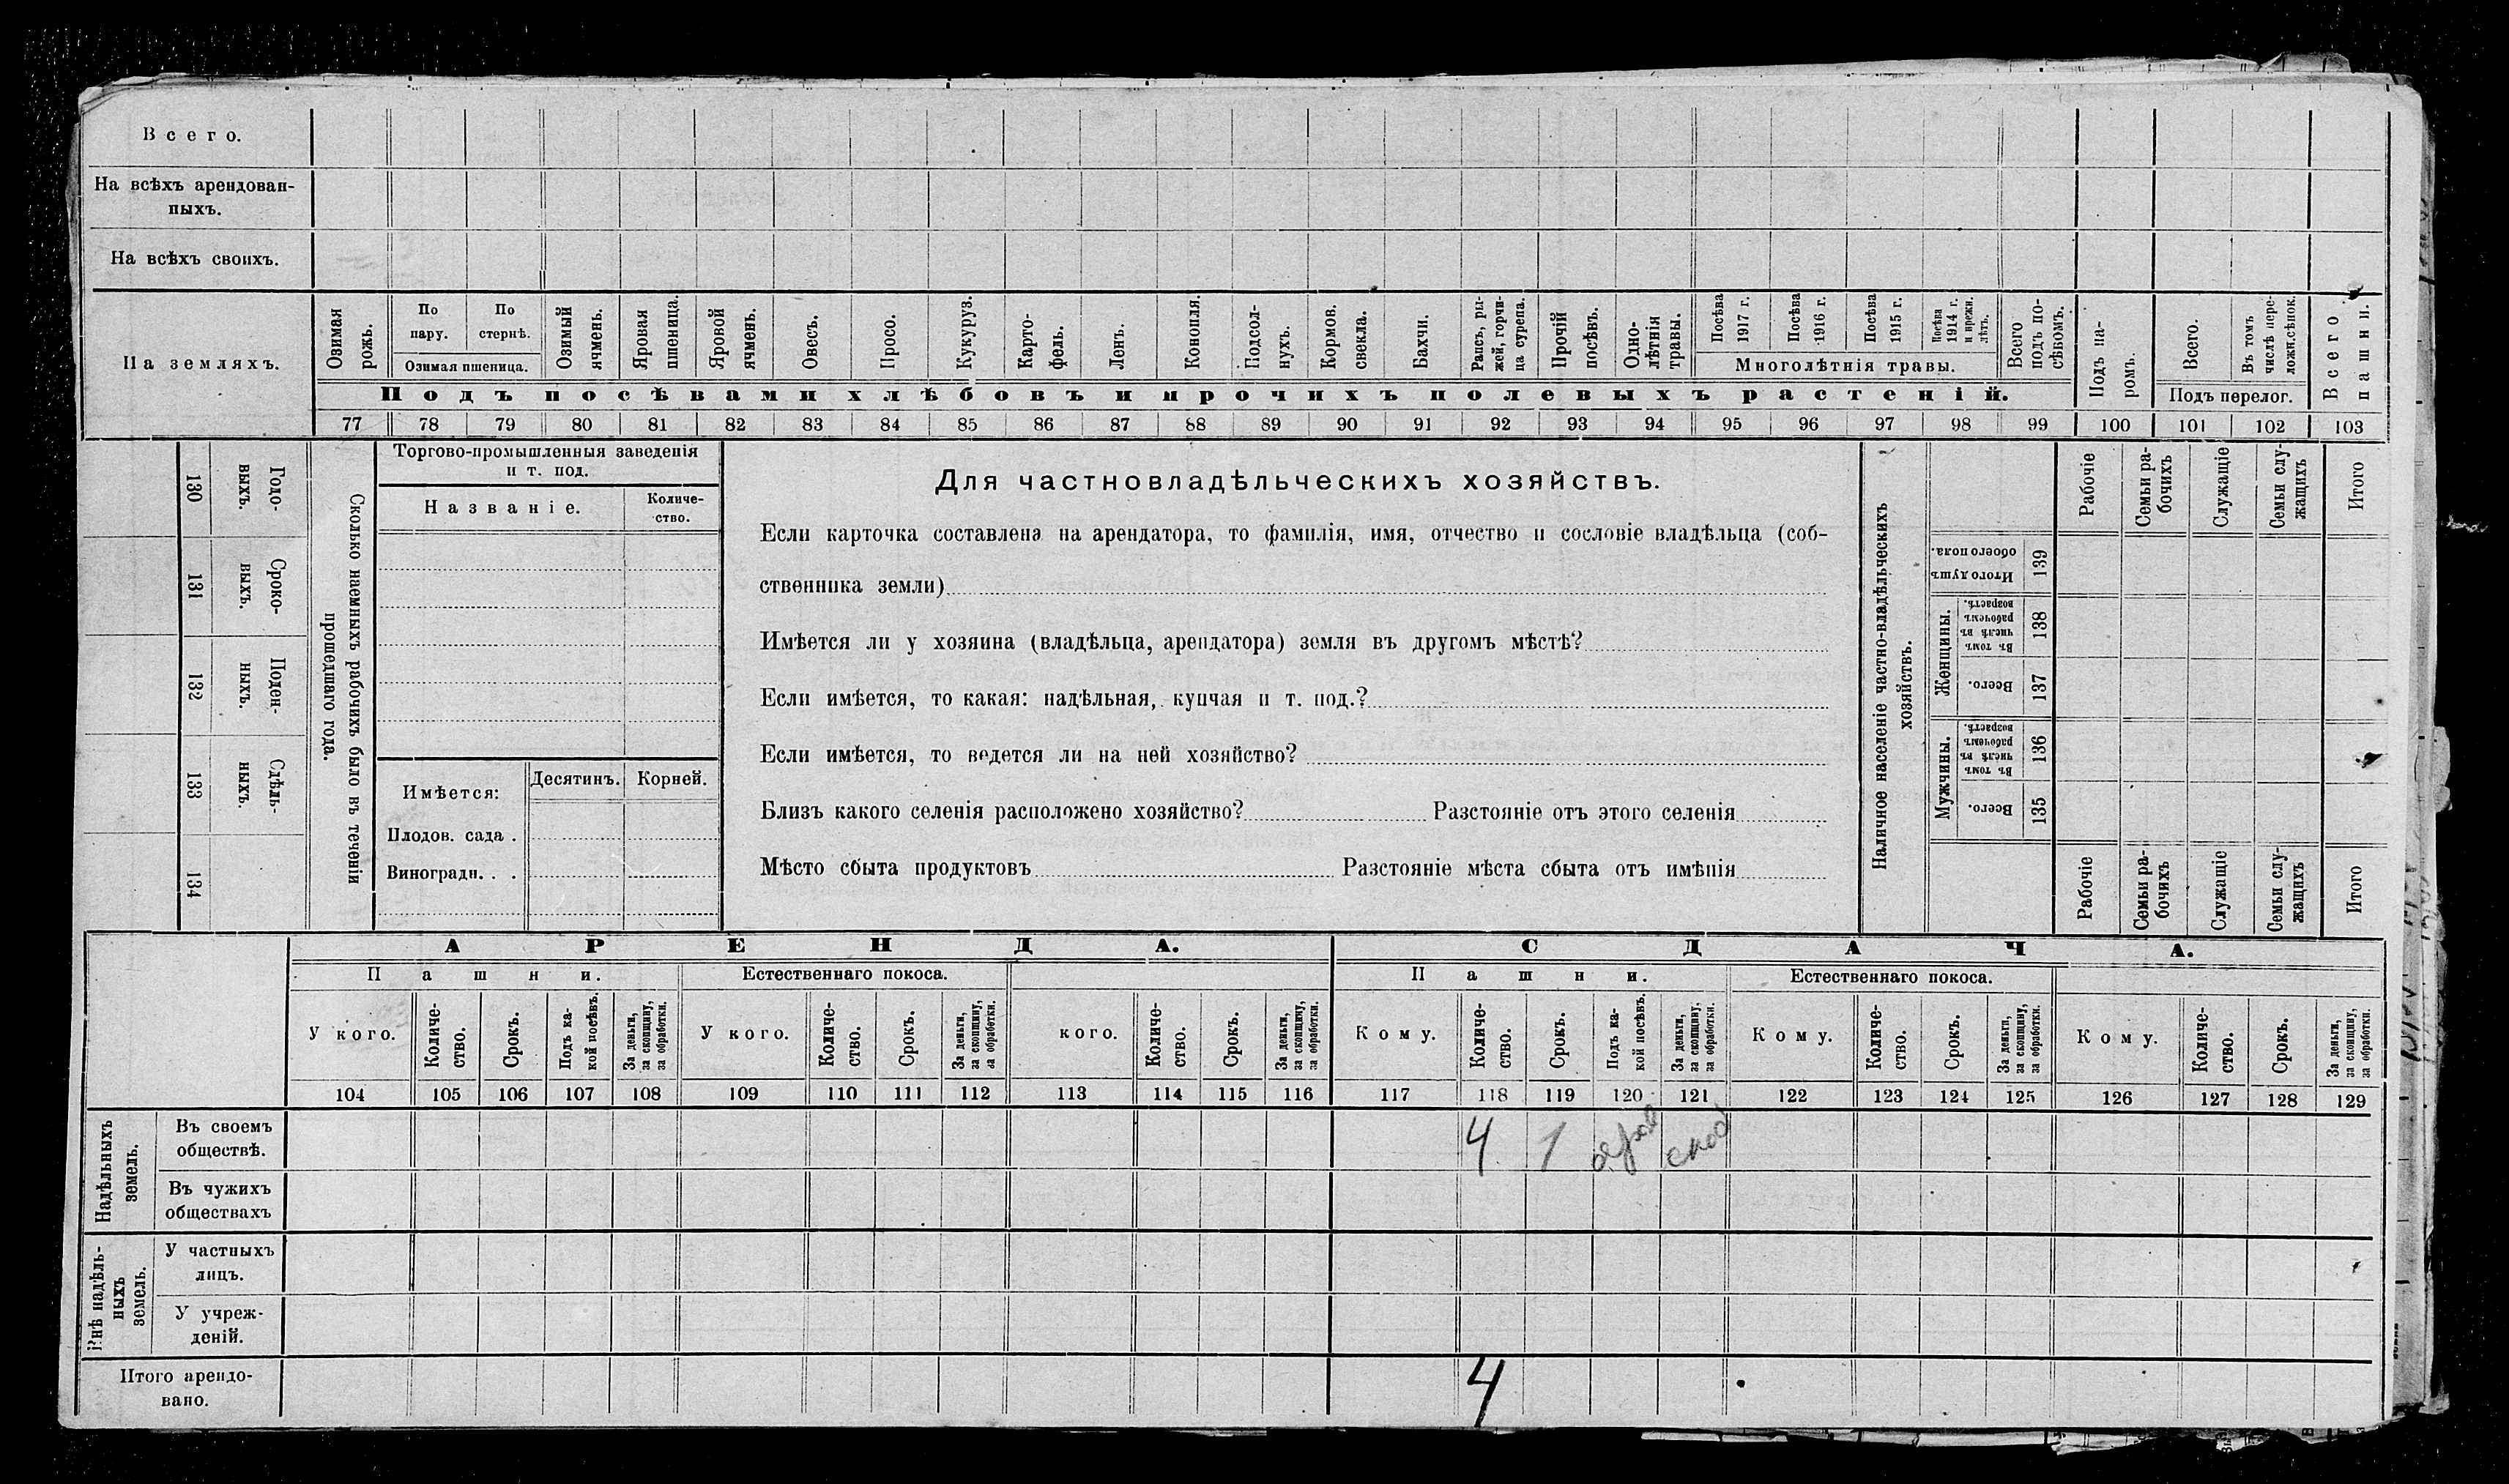 Всего.
На всѣхъ арендован-
ныхъ.
На всѣхъ своихъ.
На земляхъ.
Озимая рожь.
По пару.
По стернѣ.
Озимая пшеница.
Озимый ячмень.
Яровая пшеница.
Яровой ячмень.
Овесъ.
Просо.
Кукуруз.
Карто-
фель.
Ленъ.
Конопля.
Подсол-
нухъ.
Кормов. свекла.
Бахчи.
Рапсъ, ры-
жей, горчи-
ца сурепа.
Прочій посѣвъ.
Одно-
лѣтнія травы.
Посѣва 1917 г.
Посѣва 1916 г.
Посѣва 1915 г.
Посѣва 1914 г. и прежн. лѣтъ.
Многолѣтнія травы.
Всего подъ по-
сѣвомъ.
Подъ посѣвами хлѣбовъ и прочихъ полевыхъ растеній.
Подъ па-
ромъ.
Всего.
Въ томъ числѣ пере-
ложн.сѣнок.
Подъ перелог.
Всего пашни.
77 78 79 80 81 82 83 84 85 86 87 88 89 90 91 92 93 94 95 96 97 98 99 100 101 102 103
130
Годо-
выхъ.
131
Сроко-
выхъ.
132
Поден-
ныхъ.
133
Сдѣль-
ныхъ.
134
Сколько наемныхъ рабочихъ было въ теченіи
прошедшаго года.
Торгово-промышленныя заведенія
и т. под.
Названіе.
Количе-
ство.
Имѣется:
Десятинъ.
Корней.
Плодов. сада .
Виноградн. . .
Для частновладѣльческихъ хозяйствъ.
Если карточка составлена на арендатора, то фамилія, имя, отчество и сословіе владѣльца (соб-
ственника земли)
Имѣется ли у хозяина (владѣльца, арендатора) земля въ другомъ мѣстѣ?
Если имѣется, то какая: надѣльная, купчая и т. под.?
Если имѣется, то ведется ли на ней хозяйство?
Близъ какого селенія расположено хозяйство? Разстояніе отъ этого селенія
Мѣсто сбыта продуктовъ Разстояніе мѣста сбыта отъ имѣнія
Наличное населеніе частно-владѣльческихъ
хозяйствъ.
Рабочіе
Семьи ра-
бочихъ
Служащіе
Семьи слу-
жащихъ
Итого
Итого душъ
обоего пола.
139
Женщины.
Въ томъ числѣ въ рабочемъ возрастѣ.
138
Всего.
137
Мужчины.
Въ томъ числѣ въ рабочемъ возрастѣ.
136
Всего.
135
Рабочіе
Семьи ра-
бочихъ
Служащіе
Семьи слу-
жащихъ
Итого
АРЕНДА.
СДАЧА.
Пашни.
Естественнаго покоса.
Пашни.
Естественнаго покоса.
У кого.
Количе-
ство.
Срокъ.
Подъ ка-
кой посѣвъ.
За деньги,
за скопщину,
за обработки.
У кого.
Количе-
ство.
Срокъ.
За деньги,
за скопщину,
за обработки.
кого.
Количе-
ство.
Срокъ.
За деньги,
за скопщину,
за обработки.
Кому.
Количе-
ство.
Срокъ.
Подъ ка-
кой посѣвъ.
За деньги,
за скопщину,
за обработки.
Кому.
Количе-
ство.
Срокъ.
За деньги,
за скопщину,
за обработки.
Кому.
Количе-
ство.
Срокъ.
За деньги,
за скопщину,
за обработки.
104 105 106 107 108 109 110 111 112 113 114 115 116 117 118 119 120 121 122 123 124 125 126 127 128 129
Надѣльныхъ
земель.
Въ своемъ
обществѣ.
4 1 яров скоп
Въ чужихъ
обществахъ
нѣ надѣль-
ныхъ
земель.
У частныхъ
лицъ.
У учреж-
деній.
Итого арендо-
вано.
4